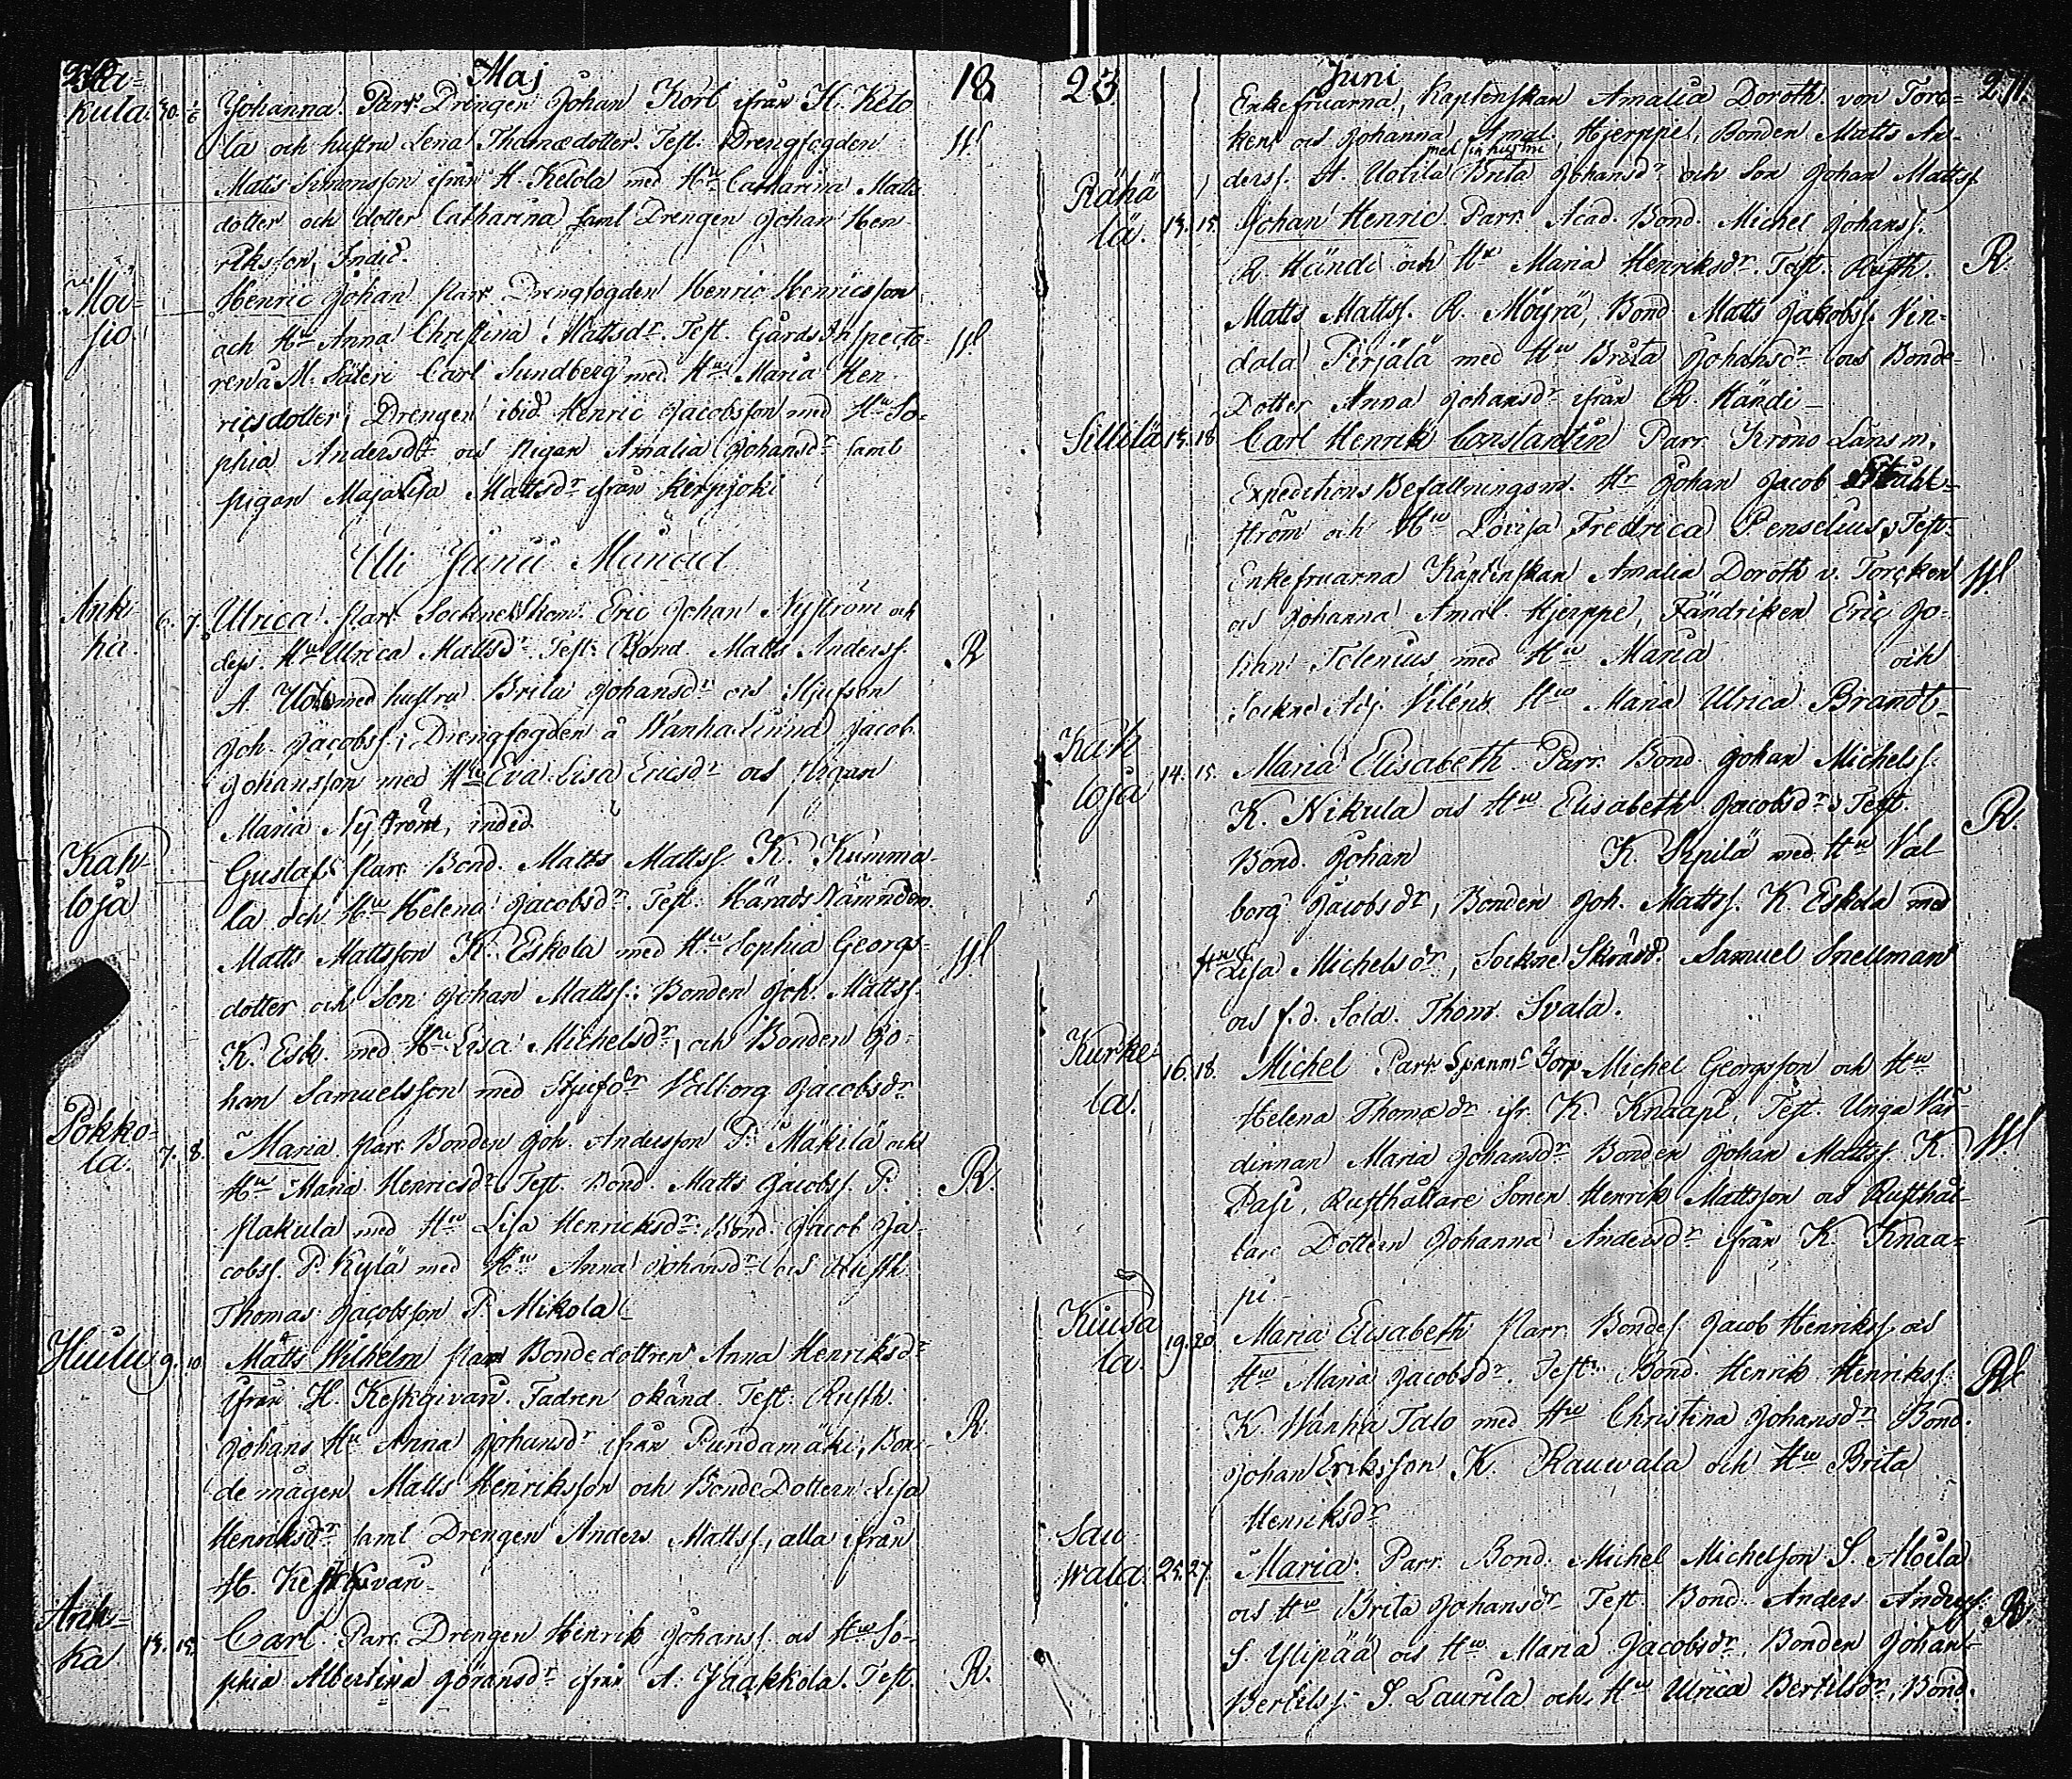 Maj 18
kula. 30. Johanna. Parr. Drengen Johan Kort ifrån H. Keto
la och hustru Lena Thomædotter. Test. Drengfogden
Matts Simonsson ifrån H. Ketola med Hu Catharina Matts
dotter och dotter Catharina samt Drengen Johan Hen
riksson, Indid.
Moi- Henric Johan Parr Drengfogden Henric Henricsson
sio. och Hu Anna Christina Mattsdr. Test. Gårds Inspecto-
ren å M. Säteri Carl Sundberg med Hu Maria Hen-
ricsdotter, Drengen ibid Henric Jacobsson med Hu So-
phia Andersdr och Pigan Amalia Johansdr samt
pigan Maja Lisa Mattsdr ifrån Kerpjoki
Uti Junii Månad
Ank- 6. 7. Ulrica. Parr. Sockneskom. Eric Johan Nyström och
ka. dess Hu Ulrica Mattsd. Test. Bond. Matts Anderss. R
A. med hustru Brita Johansdr och Stjufson
Joh. Jacobss.; Drengfogden å Wanhalinna Jacob
Johansson med Hu Eva Lisa Ericsdr och Pigan
Maria Nyström, indid.
Kah- Gustaf. Parr. Bond. Matts Mattss. K. Kumma-
loja la och Hu Helena Jacobsdr. Test. Härads Nämndem.
Matts Mattsson K. Eskola med Hu Sophia Georgs-
dotter och Son Johan Mattss.; Bonden Joh. Mattss.
K. Esk. med Hu Lisa Michelsdr, och Bonden Jo-
han Samuelsson med Stjufdr Valborg Jacobsdr
Pokko-
la. 7. 8. Maria. Parr. Bonden Joh. Andersson P. Mäkilä och
Hu Maria Henricsdr. Test. Bond. Matts Jacobss. P. R.
Nakula med Hu Lisa Henricksdr. Bond. Jacob Ja-
cobss. P. Kylä med Hu Anna Johansdr och Rusth.
Thomas Jacobsson P. Mikola
Huilu 9. 10. Matts Wilhelm Parr Bondedottren Anna Henriksdr
ifrån H. Keskgivari. Fadren okänd. Test. Rusth.
Johans Hu Anna Johansdr ifrån Pundamäki, Bon- R.
de mågen Matts Henriksson och Bonde Dottern Lisa
Henriksdr samt Drengen Anders Mattss., alla ifrån
H. Keskgivari
Ank-
ka 13. 15. Carl. Parr. Drengen Henrik Johanss. och Hu So-
phia Albertina Göransdr ifrån A. Jaakkola. Test. R.
23 Juni 271.
Enkefruarna, Kaptenskan Amalia Doroth. von Torc-
ken och Johanna Amal. Hjerppe, Bonden Matts An-
med sin hustru
derss. A. Uotila Brita Johansdr och Son Johan Mattss
Rähä
lä. 13. 15. Johan Henric. Parr. Acad. Bond. Michel Johanss.
R. Händi och Hu Maria Henriksdr. Test. Rusth. R.
Matts Mattss. R. Möyrä, Bond Matts Jakobss. Vin-
dala Pirjälä med Hu Brita Johansdr och Bonde
Dotter Anna Johansdr ifrån R. Händi
Sillilä 13. 18. Carl Henrik Constantin Parr Krono Länsm.
Expeditions Befallningsm. Hr Johan Jacob Stuhl-
ström och Hu Lovisa Fredrica Penselius, Test.
Enkefruarna Kaptenskan Amalia Doroth v. Torcken
och Johanna Amal. Hjerppe, Fändriken Eric Jo-
him Polenius med Hu Maria och
Sockne Adj. Viléns Hu Maria Ulrica Brandt
Kah
loja 14. 15. Maria Elisabeth. Parr. Bond. Johan Michelss.
K. Nikula och Hu Elisabeth Jacobsdr. Test. R.
Bond. Johan K. Sepilä med Hu Val
borg Jacobsdr, Bonden Joh. Mattss. K. Eskola med
Hu Lisa Michelsdr, Sockne Skrädd. Samuel Snellman
och f.d. Sold. Thom. Svala.
Kurke-
la. 16. 18. Michel Parr Torp. Michel Georgsson och Hu
Helena Thomædr ifr. K. Knaapi, Test. Unga Vär-
dinnan Maria Johansdr Bonden Johan Mattss. K.
Pasi, Rusthållare Sonen Henrik Mattsson och Rusthål-
lare Dottern Johanna Andersdr ifrån K. Knaa-
pi
Kiusa
la. 19. 20. Maria Elisabeth Parr. Bondes. Jacob Henrikss. och
Hu Maria Jacobsdr. Test. Bond. Henrik Henrikss.
K. Wanha Talo med Hu Christina Johansdr Bond.
Johan Eriksson K. Rauwala och Hu Brita
Henriksdr
Sau
wala. 25. 27. Maria. Parr. Bond. Michel Michelsson S. Moila
och Hu Brita Johansdr Test. Bond. Anders Anderss. R
S. Ylipää och Hu Maria Jacobsdr. Bonden Johan
Bertilss. S. Laurila och Hu Ulrica Bertilsdr, Bond.